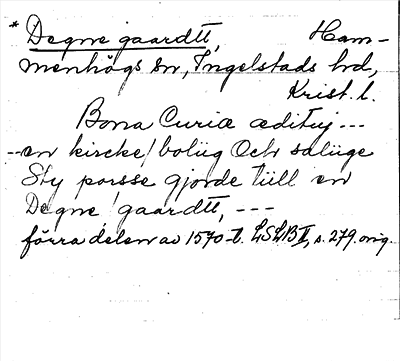 * Degne gaardtt, Ham-
menhögs sn, Ingelstads hd,
Krist. l.
Bona Curiæ ædituj ---
-- en kircke / bolüg Och salüge
Sty porsse gjorde tüll en
Degne / gaardtt, ---
förra delen av 1570-t. LSLB II, s. 279. orig.